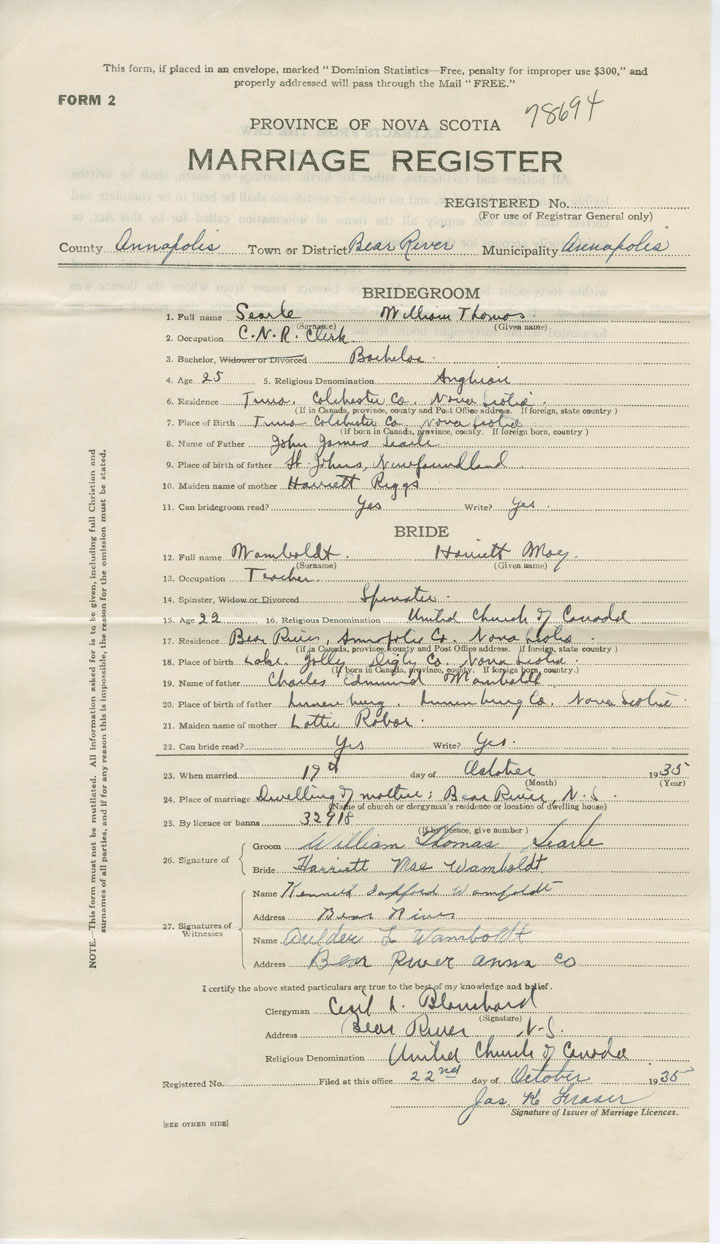 This form, if placed in an envelope, marked "Dominion Statistics—Free, penalty for improper use $300," and
properly addressed will pass through the Mail "FREE."
FORM 2
78694
PROVINCE OF NOVA SCOTIA
MARRIAGE REGISTER
REGISTERED No.
(For use of Registrar General only)
County Annapolis Town or District Bear River Municipality Annapolis
BRIDEGROOM
1. Full name Searle William Thomas
(Surname) (Given name)
2. Occupation C.N.R. Clerk
3. Bachelor, Widower or Divorced Bachelor
4. Age 25 5. Religious Denomination Anglican
6. Residence Truro, Colchester Co. Nova Scotia
(If in Canada, province, county and Post Office address. If foreign, state country)
7. Place of Birth Truro Colchester Co. Nova Scotia
(If born in Canada, province, county. If foreign born, country)
8. Name of Father John James Searle
9. Place of birth of father St. Johns, Newfoundland
10. Maiden name of mother Harriett Riggs
11. Can bridegroom read? Yes Write? Yes
BRIDE
12. Full name Wamboldt. Harriett May.
(Surname) (Given name)
13. Occupation Teacher
14. Spinster, Widow or Divorced Spinster
15. Age 22 16. Religious Denomination United Church of Canada
17. Residence Bear River, Annapolis Co. Nova Scotia
(if in Canada, province, county and Post Office address. If foreign, state country)
18. Place of birth Lake Jolly Digby Co. Nova Scotia
(If born in Canada, province, county. If foreign born, country.)
19. Name of father Charles Edmund Wamboldt
20. Place of birth of father Lunenburg, Lunenburg Co. Nova Scotia
21. Maiden name of mother Lottie Robar.
22. Can bride read? Yes Write? Yes.
23. When married 19th day of October 1935
(Month) (Year)
24. Place of marriage Dwelling of mother: Bear River, N.S.
(Name of church or clergyman's residence or location of dwelling house)
25. By licence or banns 32918
(If by licence, give number)
26. Signature of
Groom William Thomas Searle
Bride Harriett Mae Wamboldt
27. Signatures of Witnesses
Name Kenneth Wamboldt
Address Bear River
Name L Wamboldt
Address Bear River Anna Co
I certify the above stated particulars are true to the best of my knowledge and belief.
Clergyman Cecil A. Blanchard
(Signature)
Address Bear River N.S.
Religious Denomination United Church of Canada
Registered No. Filed at this office 22nd day of October 1935
Jas. H Fraser
Signature of Issuer of Marriage Licences.
[SEE OTHER SIDE]
NOTE.—This form must not be mutilated. All information asked for is to be given, including full Christian and
surnames of all parties, and if for any reason this is impossible, the reason for the omission must be stated.